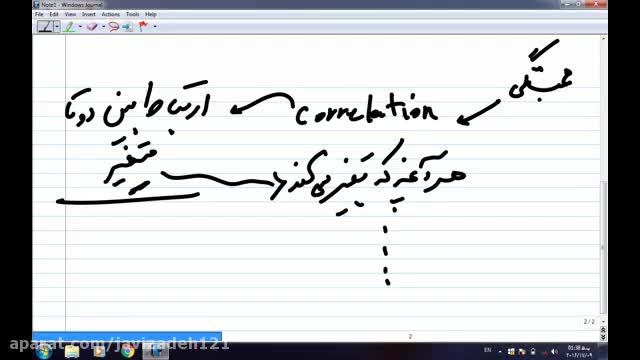 Note1 - Windows Journal
File Edit View Insert Actions Tools Help
همبستگی
correlation
ارتباط بین دو تا
متغیر
هر آنچه که تغییر می‌کند
2 / 2
2
EN
aparat.com/javizadeh121